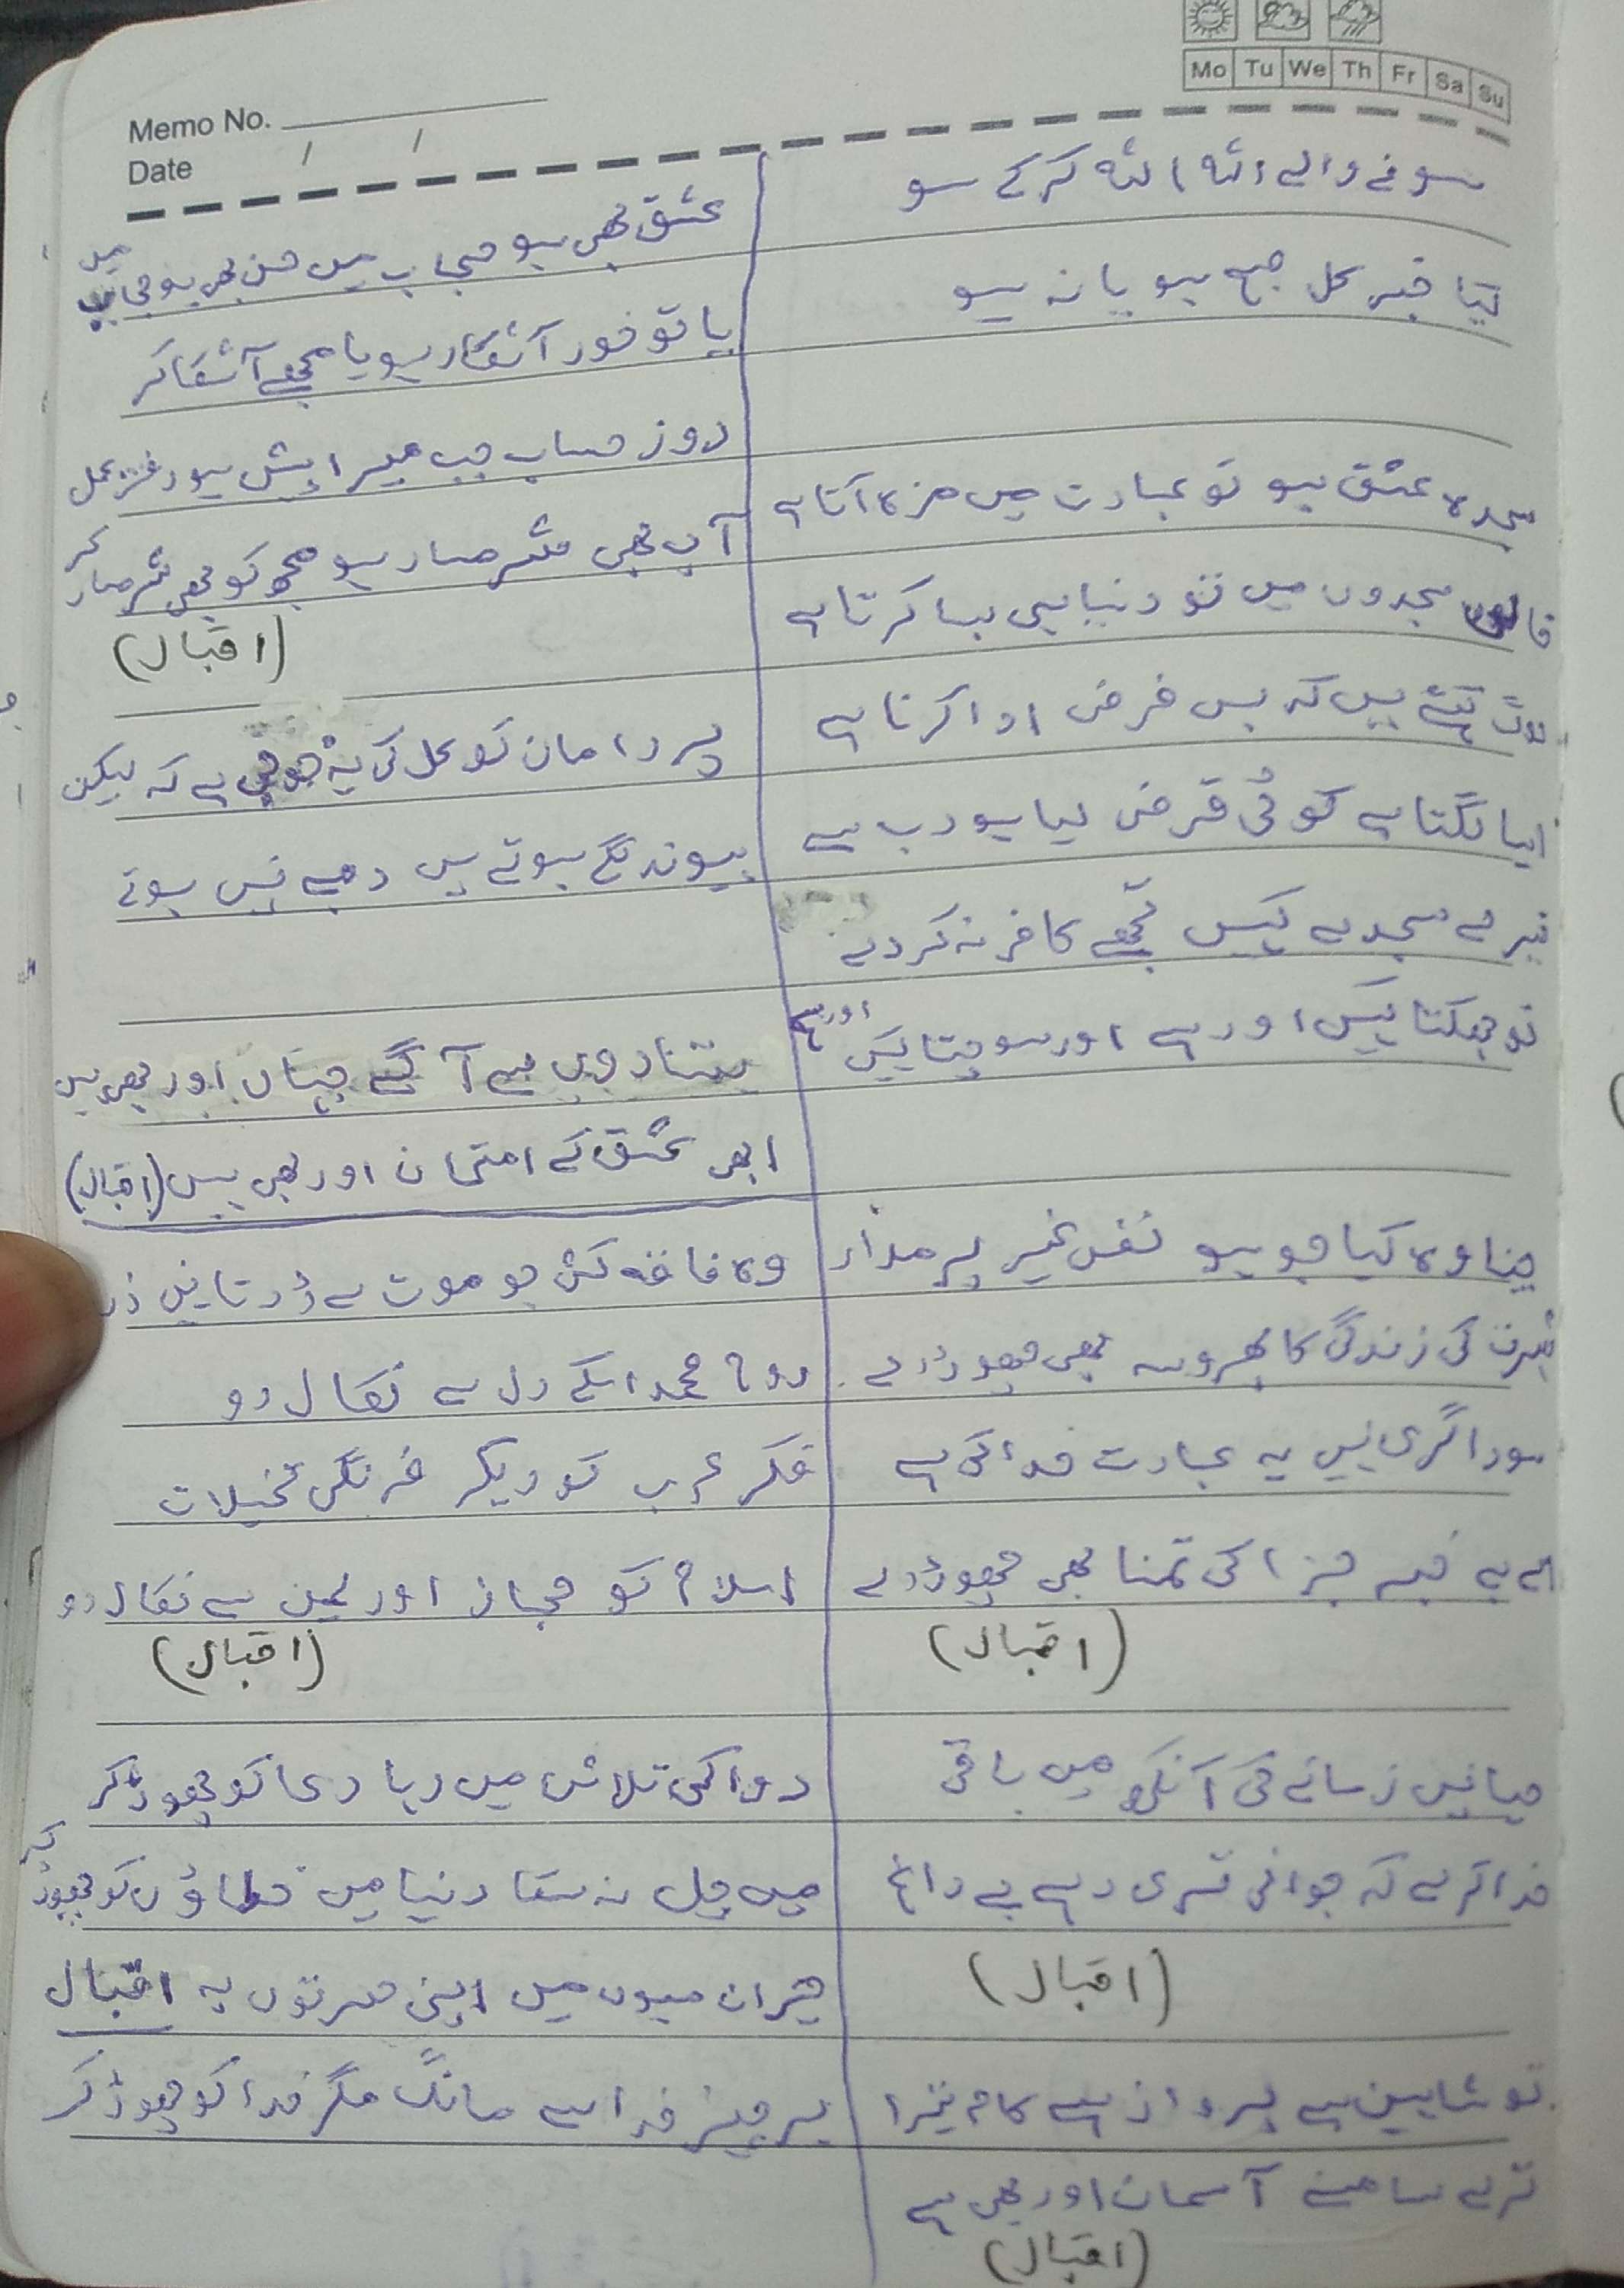 Mo Tu We Th Fr Sa Su
Memo No.
Date / /
سونے والے اللہ اللہ کرکے سو
کیا خبر کل صبح ہو یا نہ ہو
سجدہ عشق ہو تو عبادت میں مزہ آتا ہے
خالی سجدوں میں تو دنیا ہی بسا کرتا ہے
لوگ کہتے ہیں کہ بس فرض ادا کرنا ہے
ایسا لگتا ہے کوئی قرض لیا ہو رب سے
تیرے سجدے کہیں تجھے کافر نہ کر دے
تو جھکتا کہیں اور ہے اور سوچتا کہیں اور ہے
جینا وہ کیا جو ہو نفس غیر پر مدار
شہرت کی زندگی کا بھروسہ بھی چھوڑ دے
سوداگری نہیں یہ عبادت خدا کی ہے
اے بے خبر جزا کی تمنا بھی چھوڑ دے
(اقبال)
حیا نہیں زمانے کی آنکھ میں باقی
خدا کرے کہ جوانی تری رہے بے داغ
(اقبال)
تو شاہین ہے پرواز ہے کام تیرا
ترے سامنے آسمان اور بھی ہے
(اقبال)
عشق بھی ہو حجاب میں حسن بھی ہو حجاب میں
یا تو خود آشکار ہو یا مجھے آشکا کر
روز حساب جب میرا پیش ہو دفتر عمل
آپ بھی شرمسار ہو مجھ کو بھی شرمسار کر
(اقبال)
پر دامان کو عمل کی یہ خوبی ہے کہ لیکن
پیوند لگے ہوتے ہیں دھبے نہیں ہوتے
ستاروں سے آگے جہاں اور بھی ہیں
ابھی عشق کے امتحان اور بھی ہیں (اقبال)
وہ فاقہ کش جو موت سے ڈرتا نہیں ذر
روح محمد اسکے دل سے نکال دو
فکر عرب کو دیکر فرنگی تخیلات
اسلام کو حجاز اور یمن سے نکال دو
(اقبال)
دوا کی تلاش میں رہا دعا کو چھوڑ کر
میں چل نہ سکا دنیا میں خطاؤں کو چھوڑ کر
حیران ہوں میں اپنی حسرتوں پہ اقبال
ہر چیز خدا سے مانگ مگر خدا کو چھوڑ کر